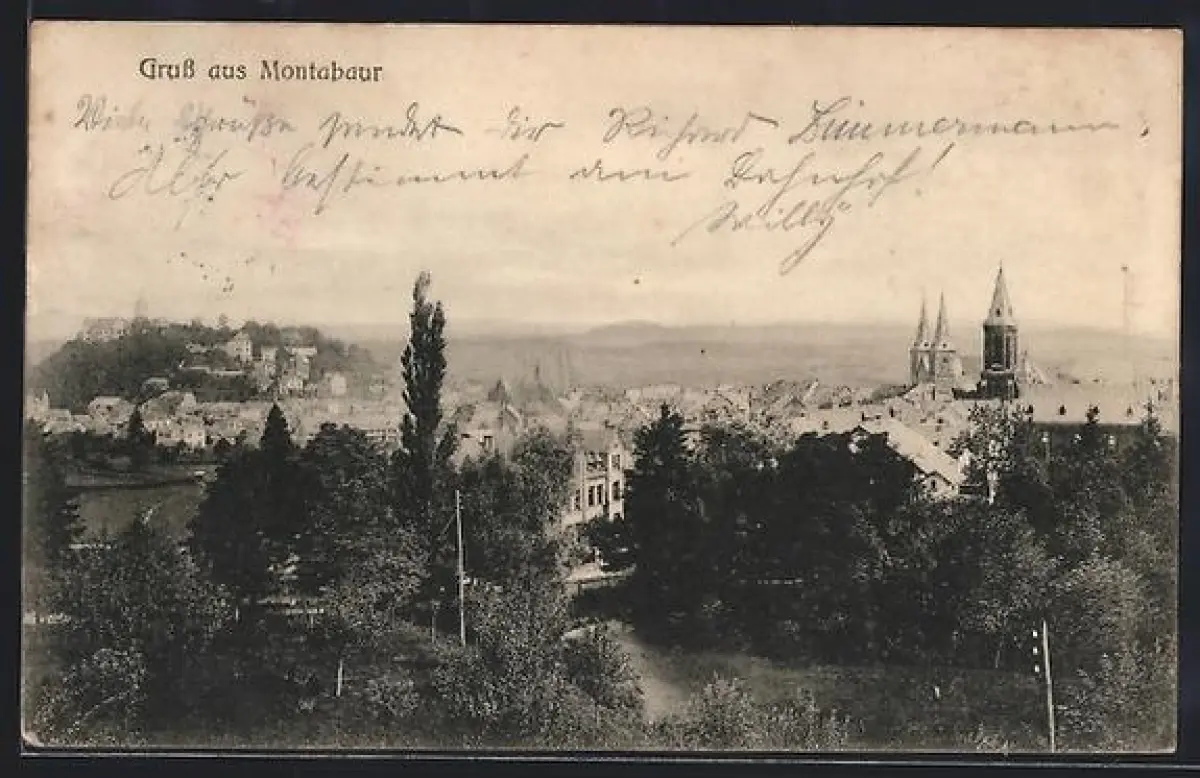 Gruß aus Montabaur
Viele Grüße sendet dir Richard Zimmermann.
bestimmt am Bahnhof!
Willy